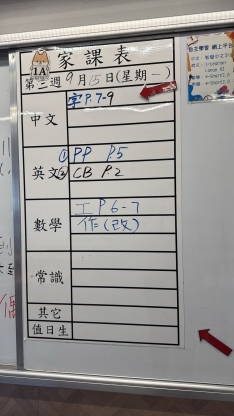 家課表
1A
第三週9月15日(星期一)
中文
字 P.7-9
英文
① PP P.5
② CB P.2
數學
工 P6-7
作(改)
常識
其它
值日生
自主學習 網上平台